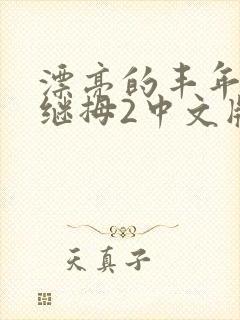 漂亮的丰年
继拇2中文版
天真子